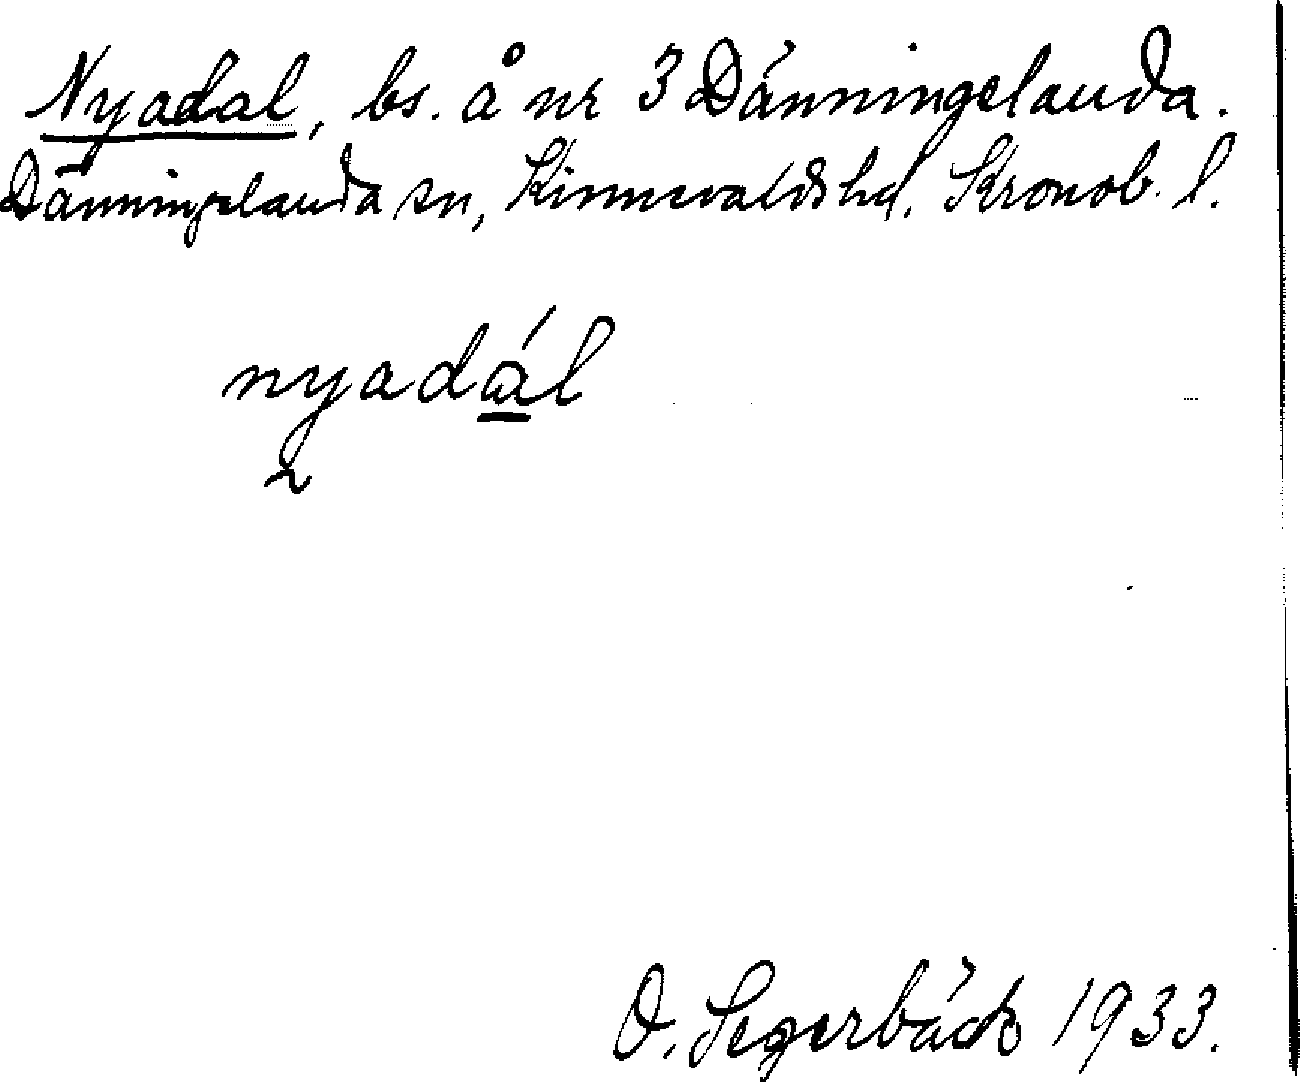 Nyadal, bs. å nr 3 Dänningelanda.
Dänningelanda sn, Kinnevaldshd. Kronob. l.
nyadál
2
O. Segerbäck 1933.